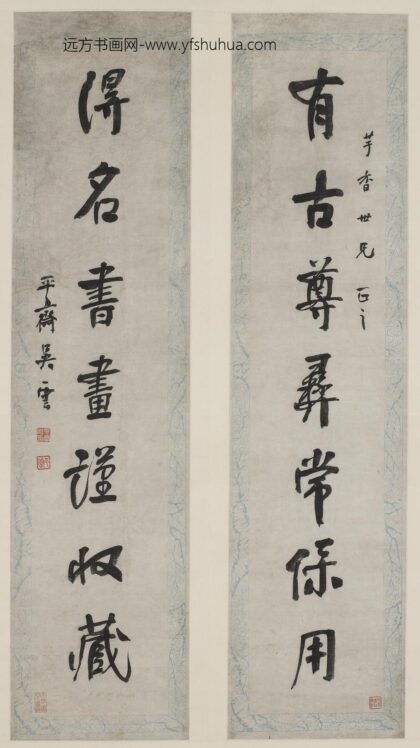 远方书画网-www.yfshuhua.com
芋香世兄正之
有古尊彝常保用
得名書畫謹收藏
平齋吳雲